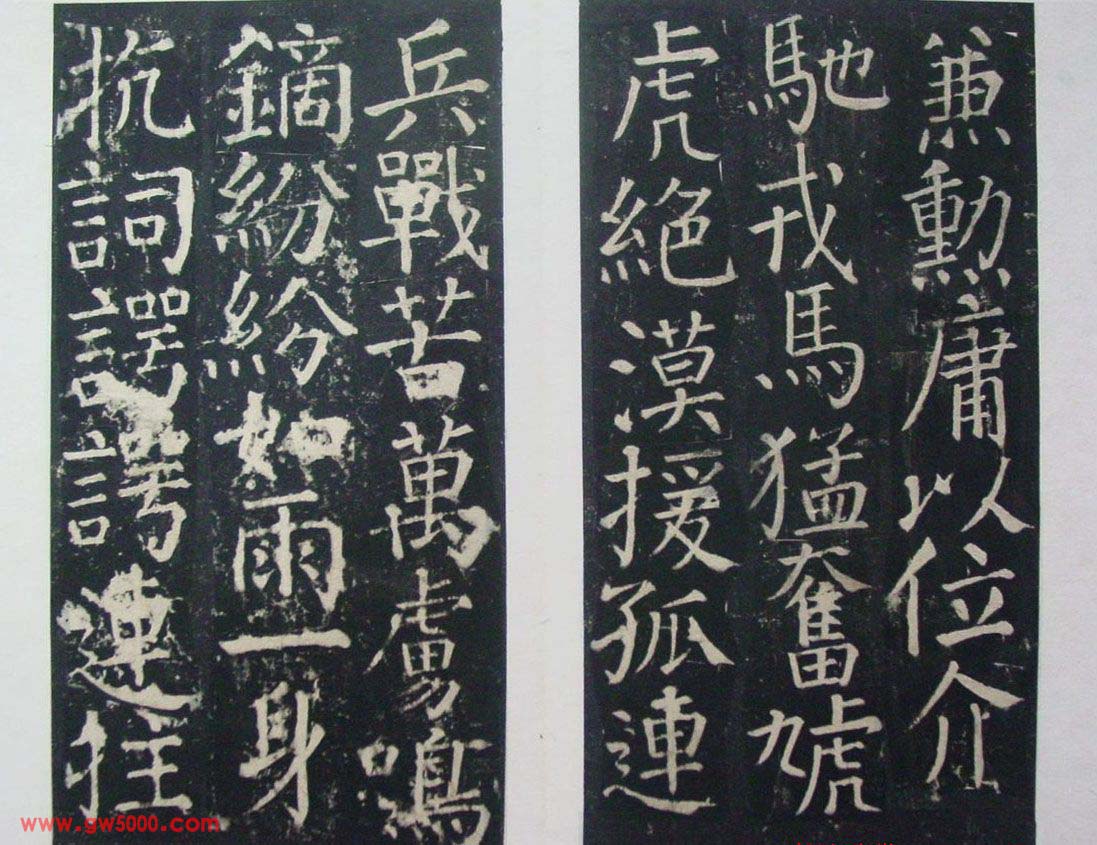 兼勳庸以位介
馳戎馬猛奮虓
虎絕漠援孤連
兵戰苦萬虜鳴
鏑紛紛如雨一身
抗詞諤諤連拄
www.gw5000.com